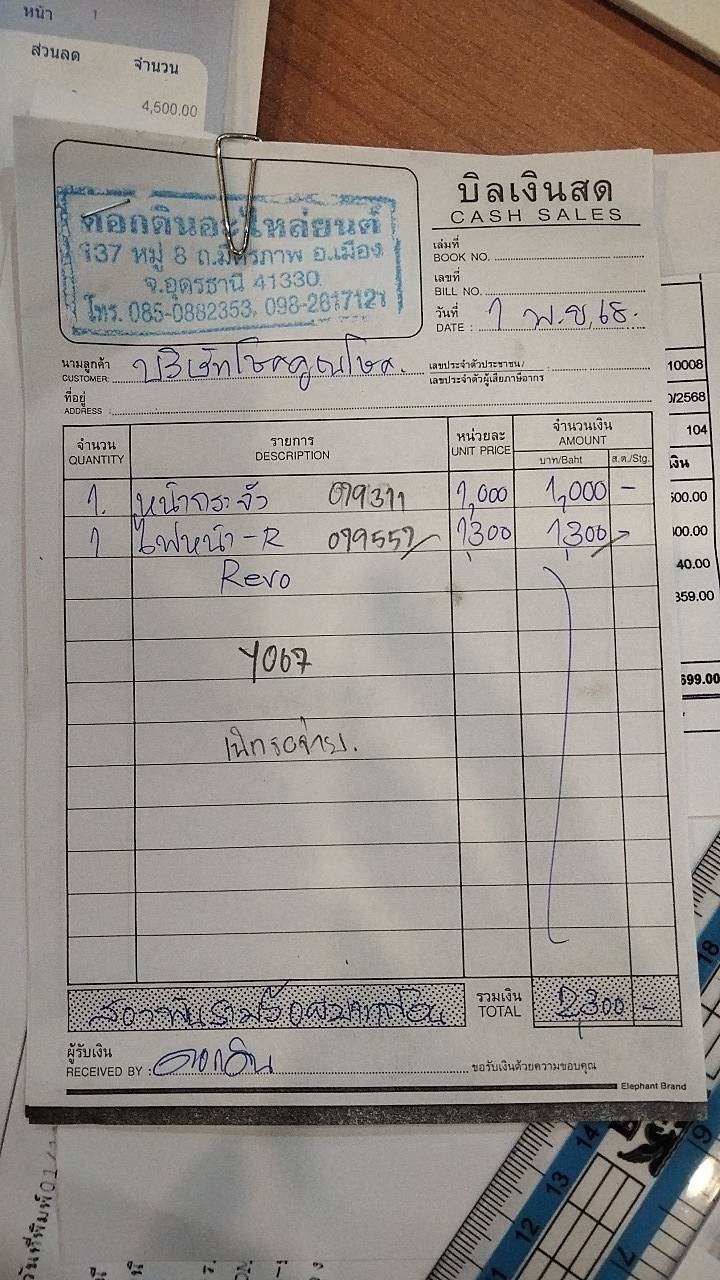 หน้า 1
ส่วนลด จำนวน
4,500.00
ดอกดินอะไหล่ยนต์
137 หมู่ 8 ถ.มิตรภาพ อ.เมือง
จ.อุดรธานี 41330.
โทร. 085-0882353, 098-2617121
บิลเงินสด
CASH SALES
เล่มที่
BOOK NO.
เลขที่
BILL NO.
วันที่
DATE : 1 พ.ย. 68.
นามลูกค้า
CUSTOMER: บริษัทโชคคูณโชค.
เลขประจำตัวประชาชน/
เลขประจำตัวผู้เสียภาษีอากร
ที่อยู่
ADDRESS :
จำนวน รายการ หน่วยละ จำนวนเงิน
QUANTITY DESCRIPTION UNIT PRICE AMOUNT
บาท/Baht ส.ต./Stg.
1. หน้ากระจัง 079311 1,000 1,000 -
1 ไฟหน้า-R 079557 1,300 1,300 -
Revo
Y067
รวมเงิน
TOTAL 2,300 -
สองพันสามร้อยบาทถ้วน
ผู้รับเงิน
RECEIVED BY : ดอกดิน
ขอรับเงินด้วยความขอบคุณ
Elephant Brand
10008
0/2568
104
เงิน
500.00
300.00
40.00
359.00
699.00
วันที่พิมพ์ 01/1
18
14
13
12